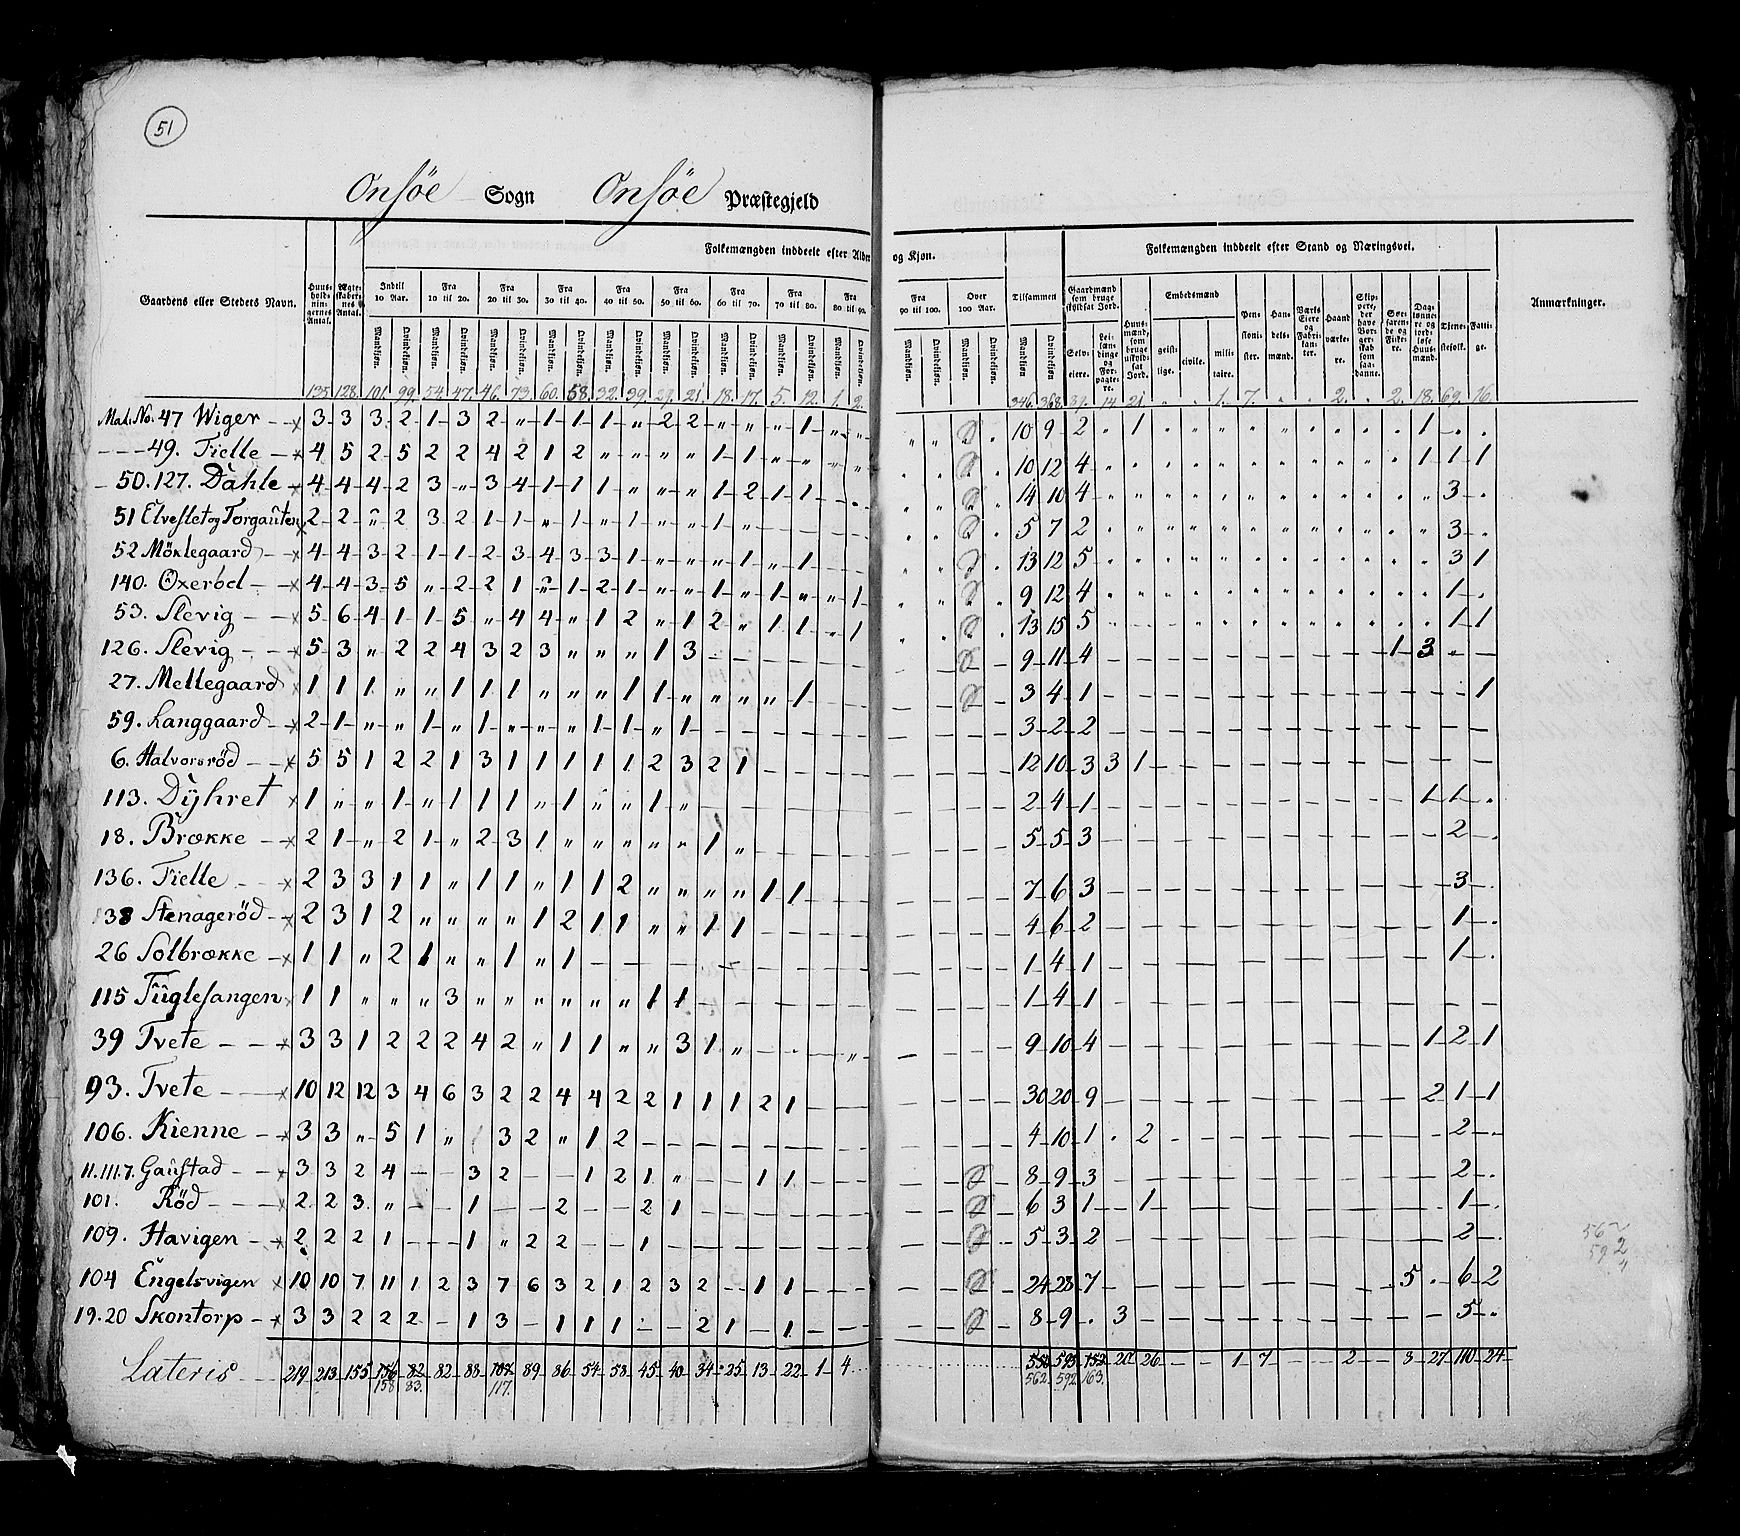 51
Onsøe Sogn Onsøe Præstegjeld
Gaardens eller Stedets Navn.
Huusholdningernes Antal.
Ægteskabernes Antal.
Folkemængden inddeelt efter Alder og Kjøn.
Indtil 10 Aar. Fra 10 til 20. Fra 20 til 30. Fra 30 til 40. Fra 40 til 50. Fra 50 til 60. Fra 60 til 70. Fra 70 til 80. Fra 80 til 90. Fra 90 til 100. Over 100 Aar. Tilsammen
Mandkjøn. Qvindekjøn.
Folkemængden inddeelt efter Stand og Næringsvei.
Gaardmænd som bruge skyldsat Jord.
Selveiere.
Leilændinge og Forpagtere.
Huusmænd, som bruge uskyldsat Jord.
Embedsmænd
geistlige. civile. militaire.
Pensionister.
Handelsmænd.
Værks Eiere og Fabrikanter.
Haandværkere.
Skippere, der have Borgerskab som saadanne.
Søefarende og Fiskere.
Daglønnere og jordløse Huusmænd.
Tjenestefolk.
Fattige.
Anmærkninger.
135 128 101 99 54 47 46 73 60 58 32 39 29 21 18 17 5 12 1 2 346 368 39 14 21 " " 1 7 " " 2 " 2 18 69 16
Mat. No. 47 Wiger x 3 3 3 2 1 3 2 " 1 1 1 " 2 2 " " " 1 " " 10 9 2 " 1 1
49. Fielle x 4 5 2 5 2 2 4 2 1 2 " " " " 1 1 " " " " 10 12 4 1 1 1
50. 127. Dahle x 4 4 4 2 3 " 3 4 1 1 1 " " " 1 2 1 1 14 10 4 3
51 Elveslet og Torgauten x 2 2 " 2 3 2 1 1 " 1 " 1 " " 1 " 5 7 2 3
52 Møklegaard x 4 4 3 2 1 1 2 3 4 3 3 1 " " " 1 " 1 13 12 5 3 1
140. Oxerød x 4 4 3 5 " 2 2 1 " 1 2 1 " 1 " 1 1 " " 1 9 12 4 1
53. Slevig x 5 6 4 1 1 5 " 4 4 " 1 2 " 1 2 " 1 1 " 1 13 15 5 1 1
126. Slevig x 5 3 " 2 2 4 3 2 3 " " " 1 3 9 11 4 1 3
27. Mellegaard x 1 1 1 " " 1 1 1 " " " 1 1 " " " " 1 3 4 1 1
59. Langgaard x 2 1 " " 1 " 1 " " " 1 1 " 1 3 2 2
6. Halvorsrød x 5 5 1 2 2 1 3 1 1 1 1 1 2 3 2 1 12 10 3 3 1
113. Dÿhret x 1 " " 1 " 1 1 1 " 1 " " 1 " 2 4 1 1 1
18. Brække x 2 1 " 2 1 " 2 3 1 " " " " " 1 " 5 5 3 2
136. Fielle x 2 3 3 1 1 " 1 1 " 1 1 2 " " " " 1 1 7 6 3 3
138 Stenagerød x 2 3 1 2 " " " " 1 2 1 1 " " 1 1 4 6 2 1
26 Solbrække x 1 1 " 2 1 " " 1 " 1 1 4 1 1
115 Fuglesangen x 1 1 " " " 3 " " " " " " 1 1 1 4 1
39 Tvete x 3 3 1 2 2 2 4 2 " 1 1 " " 3 1 " 9 10 4 1 2 1
93. Tvete x 10 12 12 3 4 6 3 2 2 4 4 2 2 1 1 1 2 1 30 20 9 2 1 1
106. Kienne x 3 3 " 5 1 " 3 2 " 1 2 4 10 1 2 2
11. 111. 7. Gaustad x 3 3 2 4 3 2 1 2 1 " 1 1 8 9 3 2
101. Rød x 2 2 3 " 1 2 2 1 6 3 1 1 1
109. Havigen x 2 2 2 1 1 " 2 2 1 5 3 2 2
104 Engelsvigen x 10 10 7 11 1 2 3 7 6 3 2 1 2 3 2 1 1 24 28 7 5 6 2
19. 20 Skontorp x 3 3 2 2 2 1 3 1 1 1 2 1 1 8 9 3 5
Lateris 219 213 155 156 82 82 88 107 89 86 54 58 45 40 34 25 13 22 1 4 595 152 20 26 1 7 2 3 27 110 24
158 83. 117. 562. 592. 163.
562
592